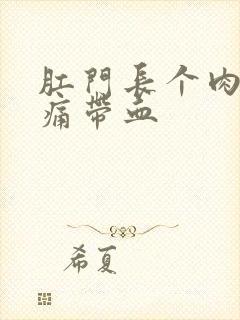 肛門長个肉
痛帶血
希夏